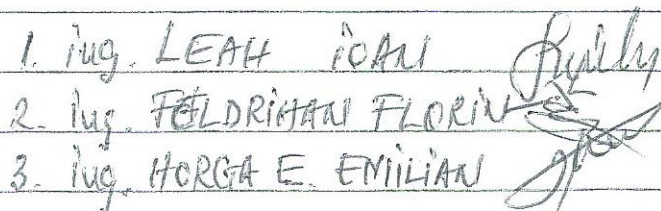 1. ing. LEAH IOAN
2. ing. FELDRIHAN FLORIN
3. ing. HORGA E. EMILIAN